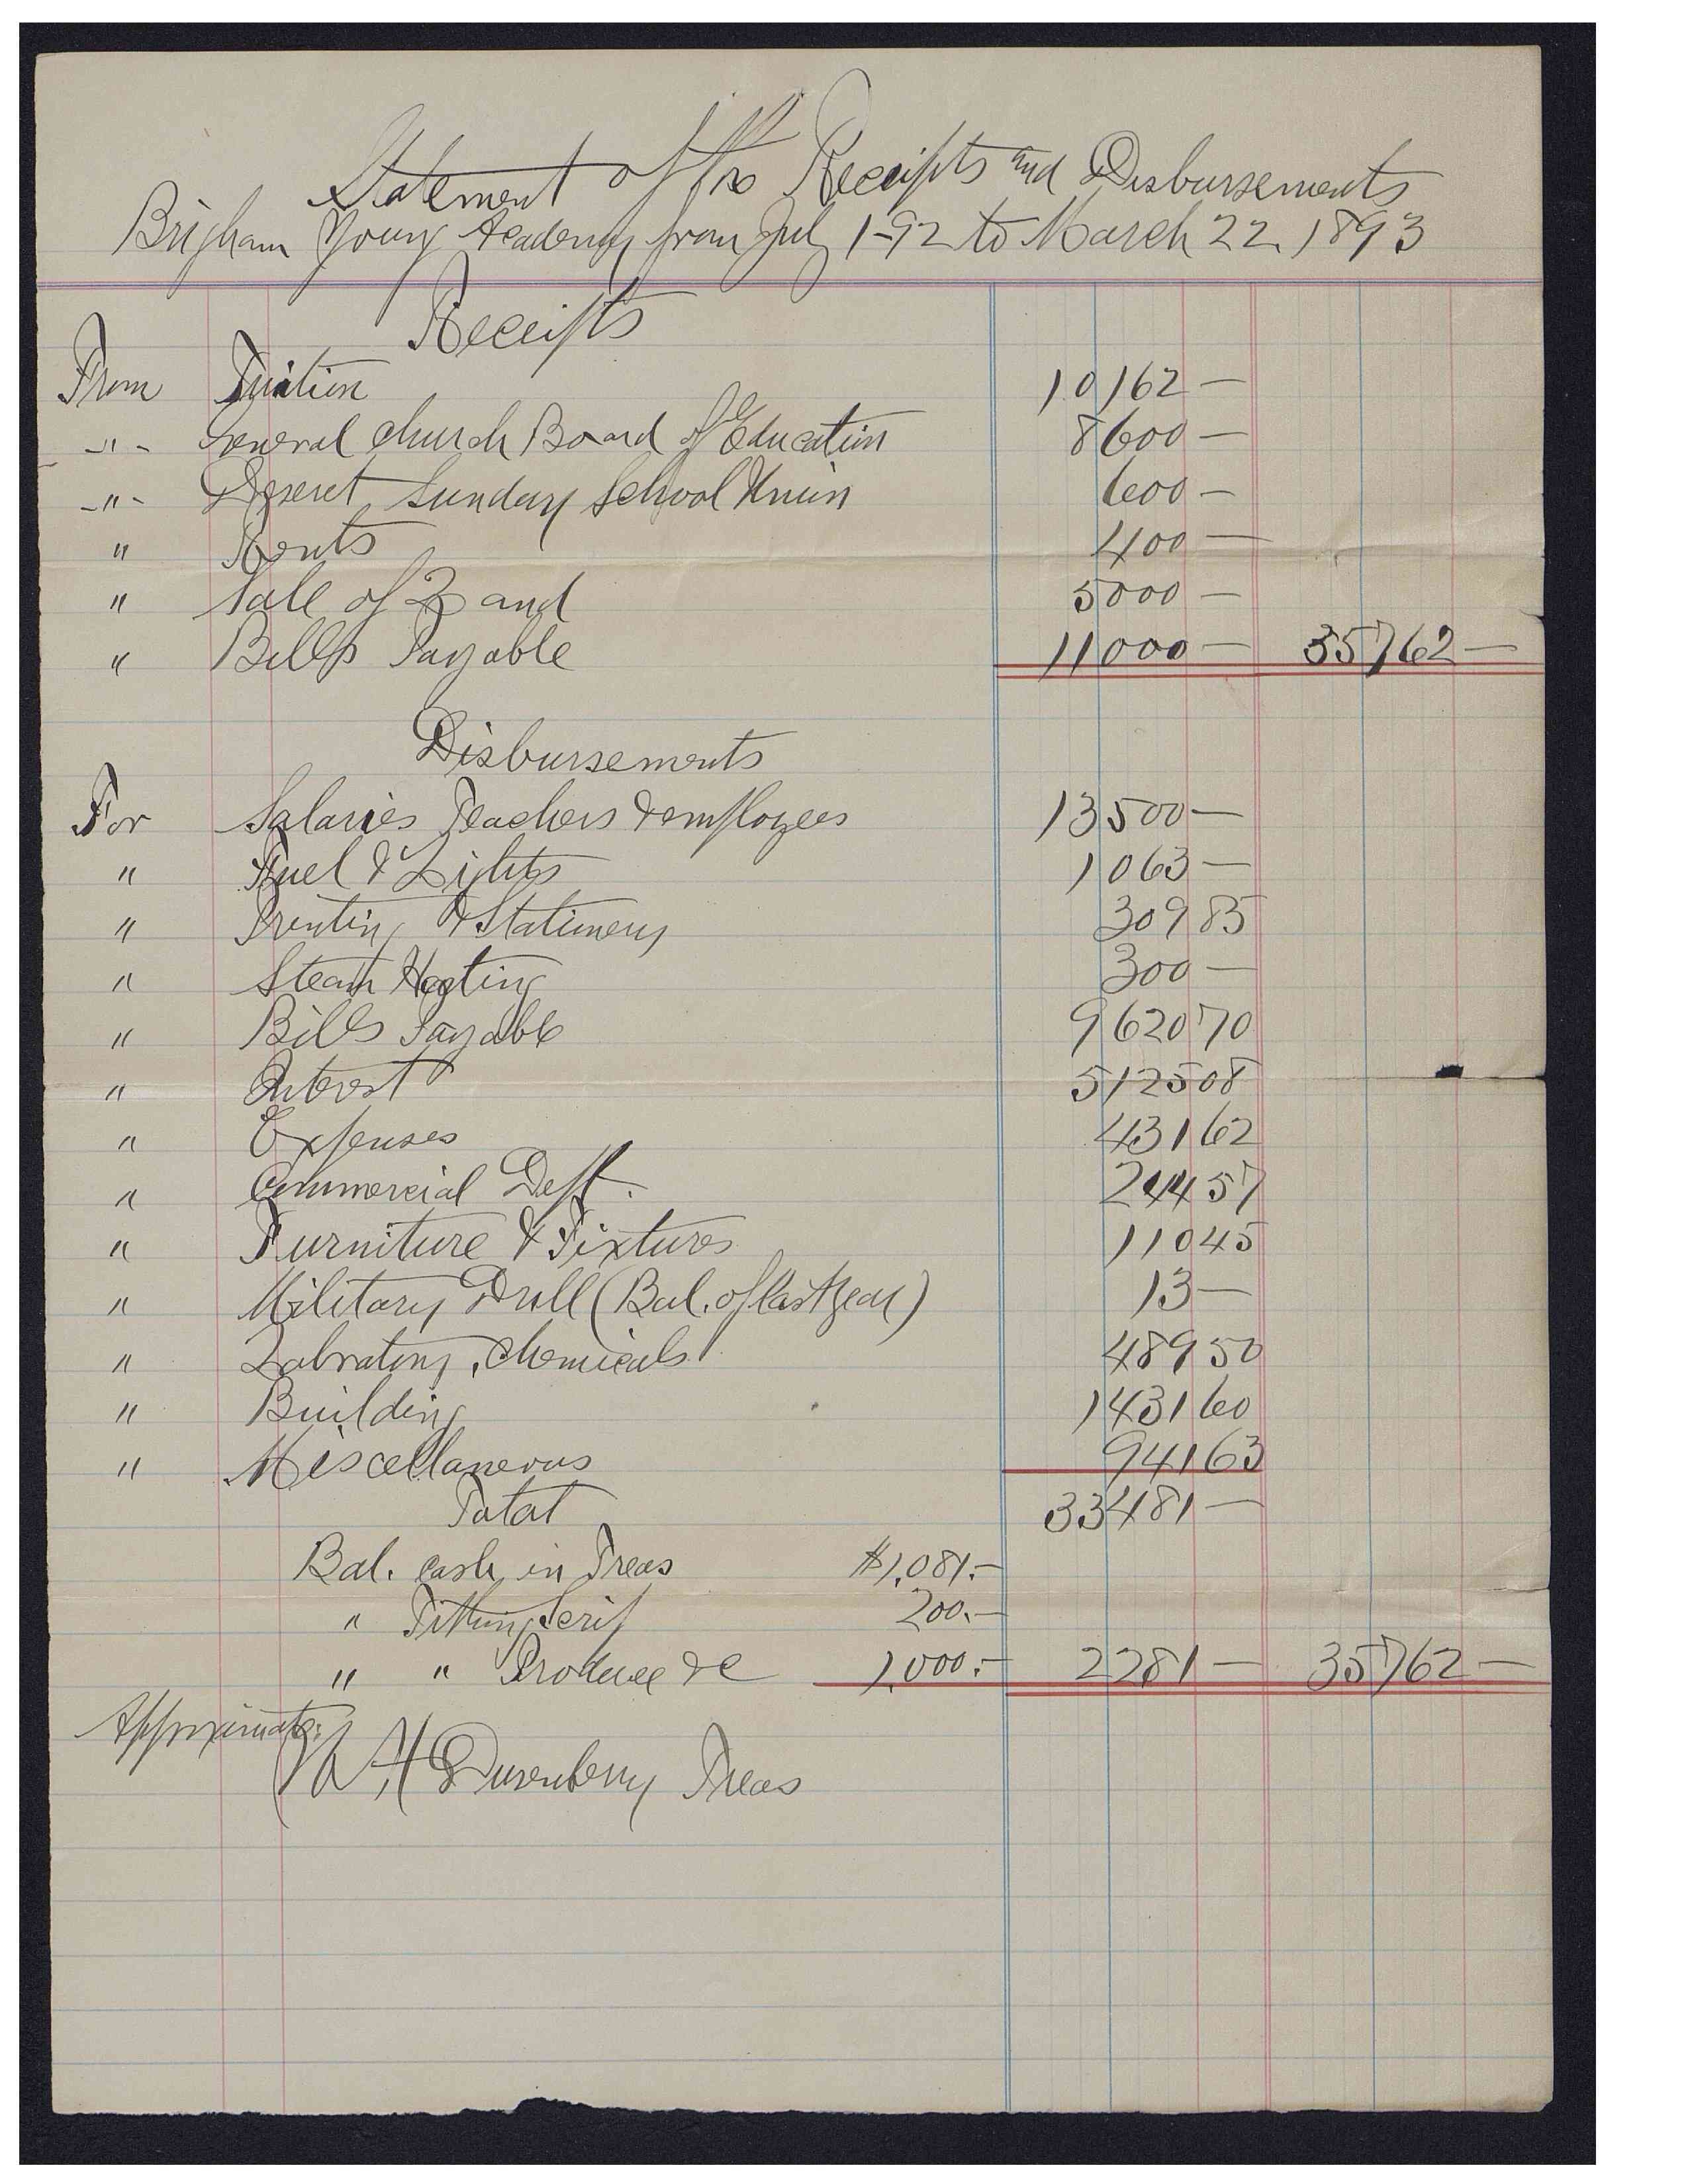 Statement of the Receipts and Disbursements
Brigham Young Academy from July 1-92 to March 22. 1893
Receipts
From Tuition 10162 —
-"- General Church Board of Education 8600 —
-"- Deseret Sunday School Union 600 —
" Rents 400 —
" Sale of Land 5000 —
" Bills Payable 11000 — 35762 —
Disbursements
For Salaries Teachers & employees 13500 —
" Fuel & Lights 1063 —
" Printing & Stationery 309 85
" Steam Heating 300 —
" Bills Payable 9620 70
" Interest 5125 08
" Expenses 431 62
" Commercial Dept. 244 57
" Furniture & Fixtures 110 45
" Military Drill (Bal. of last year) 13 —
" Labratory, Chemicals 489 50
" Building 1431 60
" Miscellaneous 941 63
Total 33481 —
Bal. cash in Treas $1,081.—
" Tithing Scrip 200.—
" " Produce &c 1,000.— 2281 — 35762 —
Approximate:
W H Dusenberry Treas